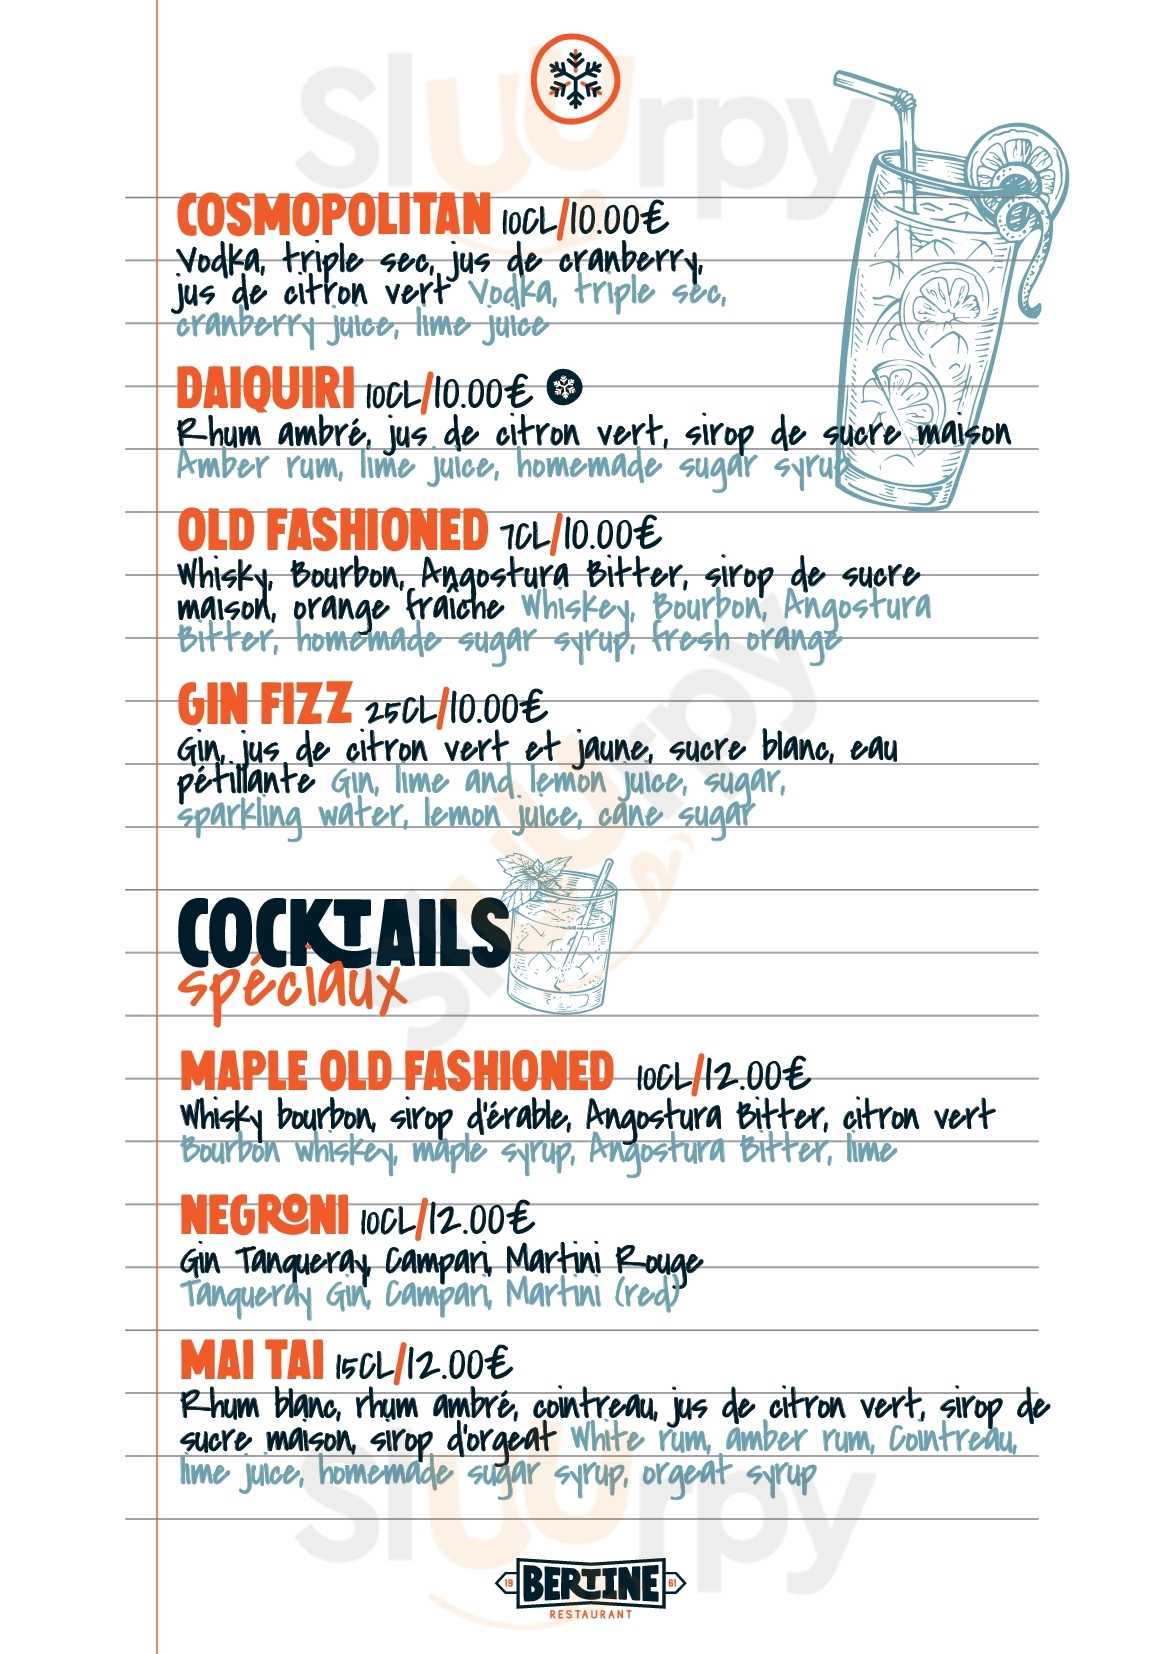 Sluurpy
COSMOPOLITAN 10CL/10.00€
Vodka, triple sec, jus de cranberry,
jus de citron vert Vodka, triple sec,
cranberry juice, lime juice
DAIQUIRI 10CL/10.00€
Rhum ambré, jus de citron vert, sirop de sucre maison
Amber rum, lime juice, homemade sugar syrup
OLD FASHIONED 7CL/10.00€
Whisky, Bourbon, Angostura Bitter, sirop de sucre
maison, orange fraîche Whiskey, Bourbon, Angostura
Bitter, homemade sugar syrup, fresh orange
GIN FIZZ 25CL/10.00€
Gin, jus de citron vert et jaune, sucre blanc, eau
pétillante Gin, lime and lemon juice, sugar,
sparkling water, lemon juice, cane sugar
Sluurpy
COCKTAILS
spéciaux
MAPLE OLD FASHIONED 10CL/12.00€
Whisky bourbon, sirop d'érable, Angostura Bitter, citron vert
Bourbon whiskey, maple syrup, Angostura Bitter, lime
NEGRONI 10CL/12.00€
Gin Tanqueray, Campari, Martini Rouge
Tanqueray Gin, Campari, Martini (red)
MAI TAI 15CL/12.00€
Rhum blanc, rhum ambré, cointreau, jus de citron vert, sirop de
sucre maison, sirop d'orgeat White rum, amber rum, Cointreau,
lime juice, homemade sugar syrup, orgeat syrup
Sluurpy
19 BERTINE 61
RESTAURANT